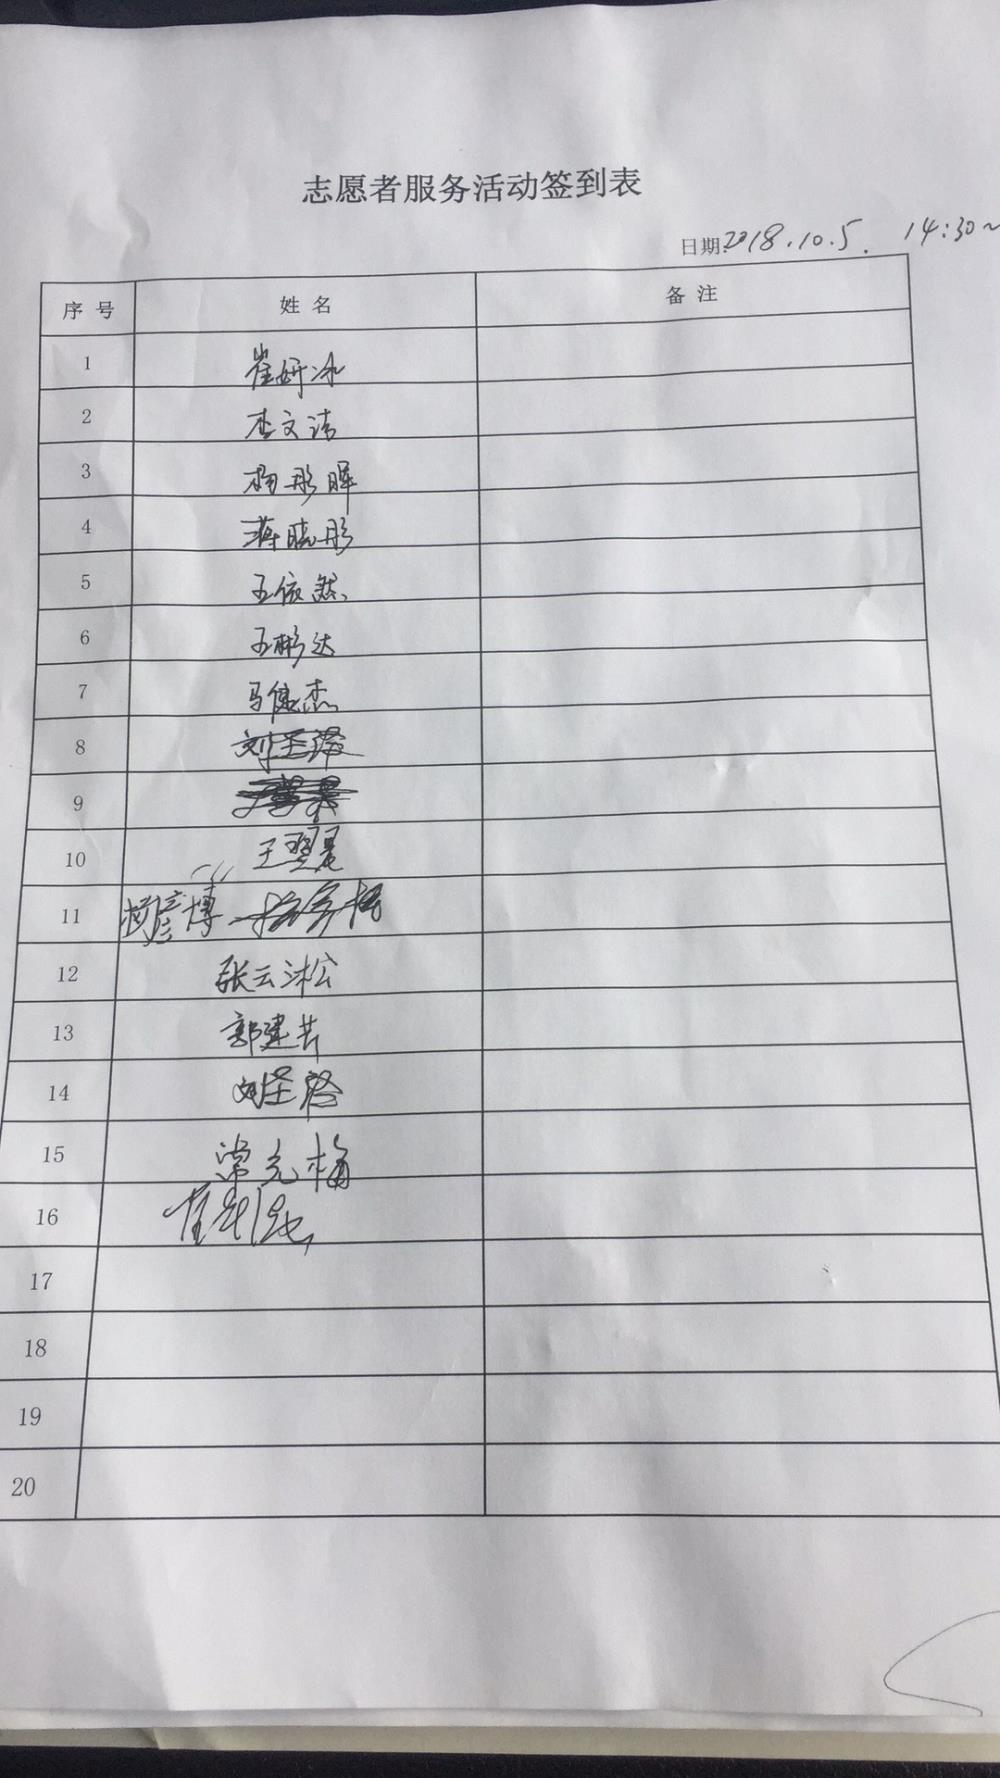 志愿者服务活动签到表
日期:2018.10.5. 14:30~
序号 姓名 备注
1 崔妍冰
2 李文洁
3 杨彤晖
4 蒋晓彤
5 王依然
6 王彬达
7 马健杰
8
9
10 王翌晨
11 杨彦博
12 张云沐公
13 郭建芸
14 刘圣
15 常元梅
16
17
18
19
20